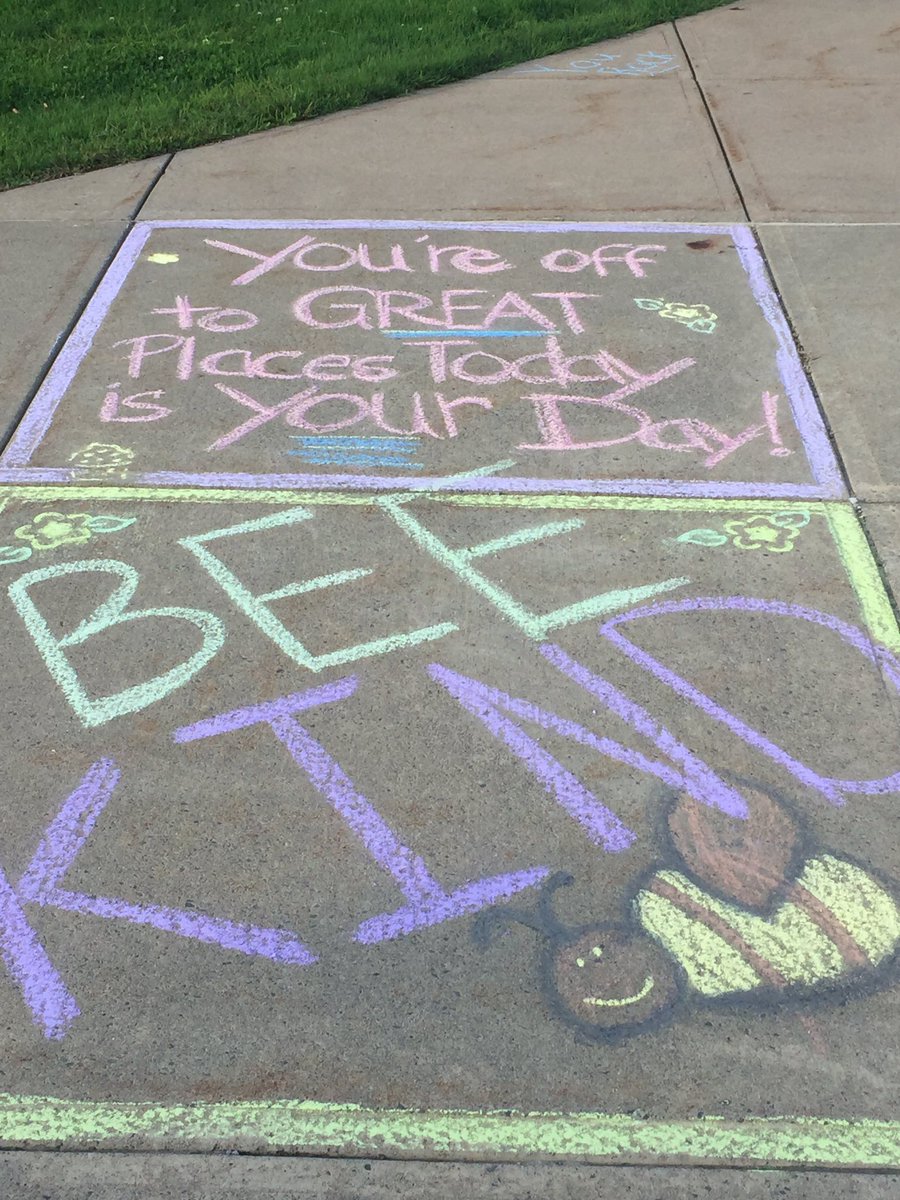 You Rock
You're off
to GREAT
Places Today
is Your Day!
BEE
KIND